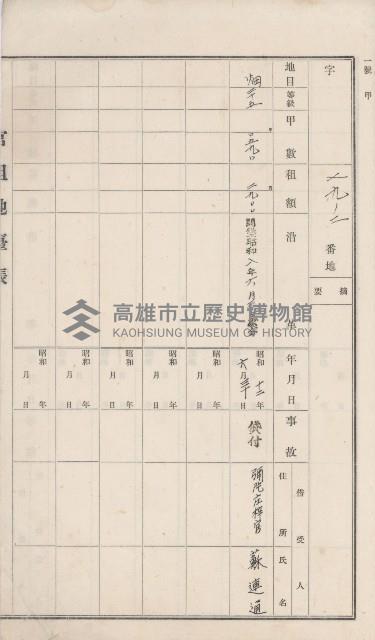 一號甲
字
一九ノ二
番地
摘要
地目
等級
甲數
租額
沿革
年月日
事故
借受人
住所
氏名
畑
二五
〇五九〇
二九〇〇
昭和八年六月
昭和十二年六月三十日
貸付
彌陀庄
蘇連通
昭和 年 月 日
昭和 年 月 日
昭和 年 月 日
昭和 年 月 日
昭和 年 月 日
官租地臺帳
高雄市立歷史博物館
KAOHSIUNG MUSEUM OF HISTORY